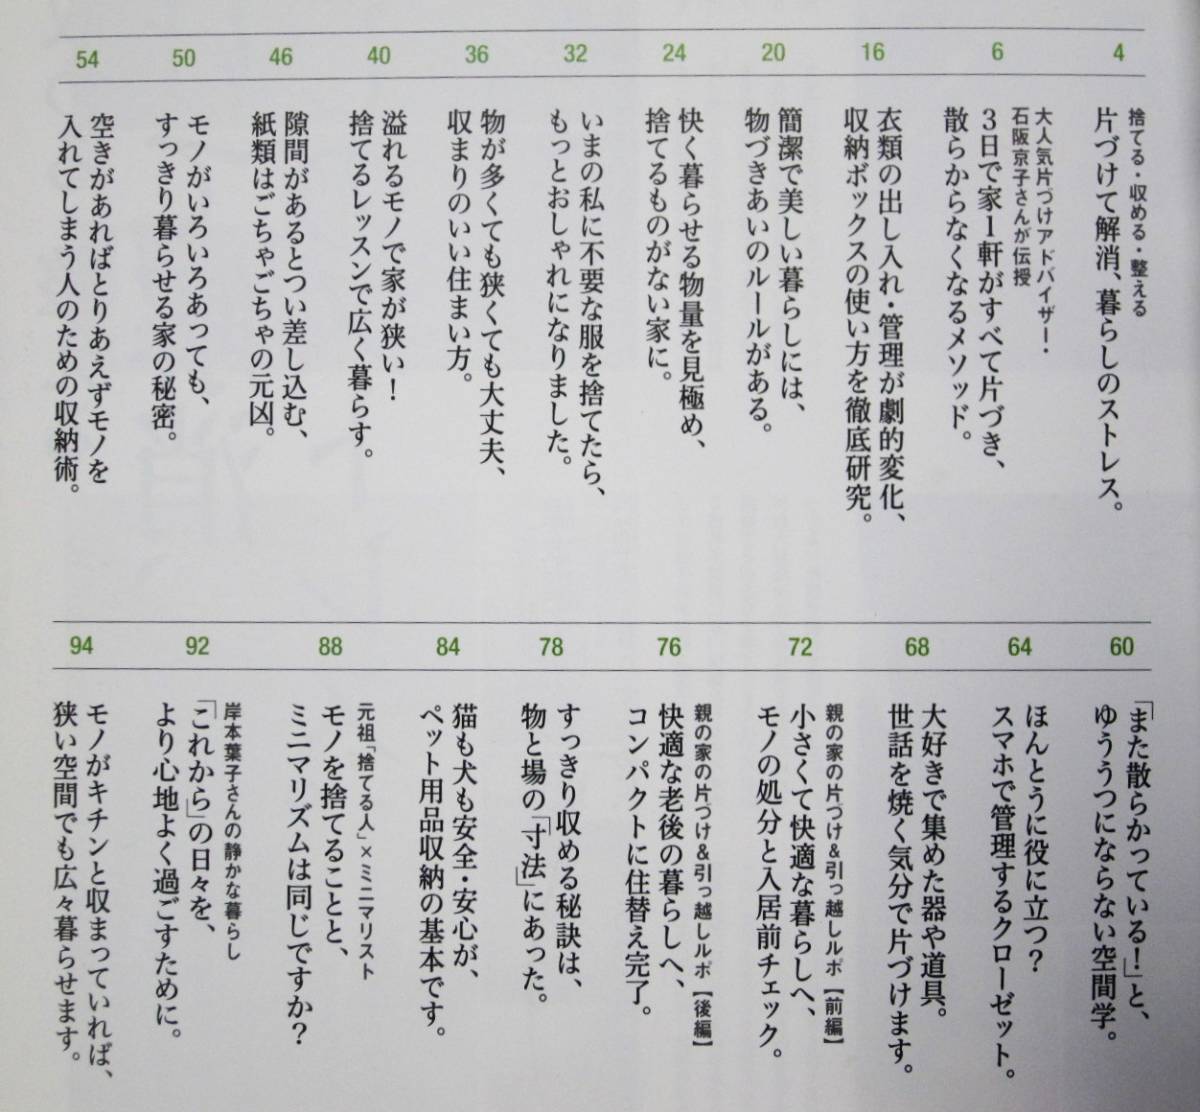 4
捨てる・収める・整える
片づけて解消、暮らしのストレス。
6
大人気片づけアドバイザー・
石阪京子さんが伝授
3日で家1軒がすべて片づき、
散らからなくなるメソッド。
16
衣類の出し入れ・管理が劇的変化、
収納ボックスの使い方を徹底研究。
20
簡潔で美しい暮らしには、
物づきあいのルールがある。
24
快く暮らせる物量を見極め、
捨てるものがない家に。
32
いまの私に不要な服を捨てたら、
もっとおしゃれになりました。
36
物が多くても狭くても大丈夫、
収まりのいい住まい方。
40
溢れるモノで家が狭い!
捨てるレッスンで広く暮らす。
46
隙間があるとつい差し込む、
紙類はごちゃごちゃの元凶。
50
モノがいろいろあっても、
すっきり暮らせる家の秘密。
54
空きがあればとりあえずモノを
入れてしまう人のための収納術。
60
「また散らかっている!」と、
ゆううつにならない空間学。
64
ほんとうに役に立つ?
スマホで管理するクローゼット。
68
大好きで集めた器や道具。
世話を焼く気分で片づけます。
72
親の家の片づけ&引っ越しルポ【前編】
小さくて快適な暮らしへ、
モノの処分と入居前チェック。
76
親の家の片づけ&引っ越しルポ【後編】
快適な老後の暮らしへ、
コンパクトに住替え完了。
78
すっきり収める秘訣は、
物と場の「寸法」にあった。
84
猫も犬も安全・安心が、
ペット用品収納の基本です。
88
元祖「捨てる人」×ミニマリスト
モノを捨てることと、
ミニマリズムは同じですか?
92
岸本葉子さんの静かな暮らし
「これから」の日々を、
より心地よく過ごすために。
94
モノがキチンと収まっていれば、
狭い空間でも広々暮らせます。